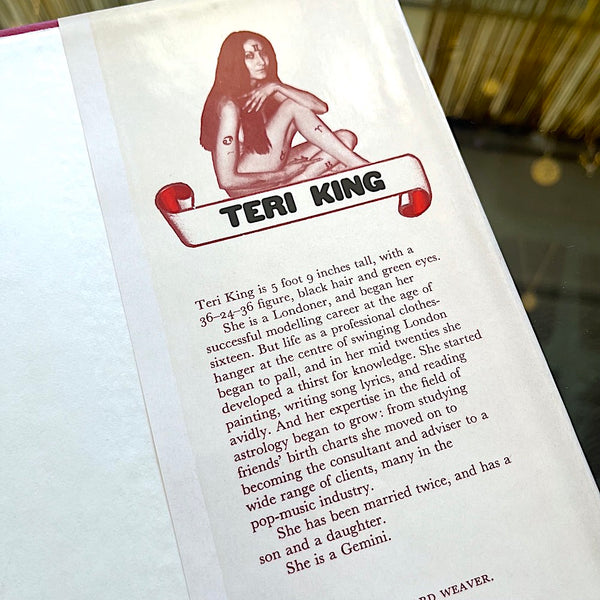 TERI KING
Teri King is 5 foot 9 inches tall, with a
36–24–36 figure, black hair and green eyes.
She is a Londoner, and began her
successful modelling career at the age of
sixteen. But life as a professional clothes-
hanger at the centre of swinging London
began to pall, and in her mid twenties she
developed a thirst for knowledge. She started
painting, writing song lyrics, and reading
avidly. And her expertise in the field of
astrology began to grow: from studying
friends' birth charts she moved on to
becoming the consultant and adviser to a
wide range of clients, many in the
pop-music industry.
She has been married twice, and has a
son and a daughter.
She is a Gemini.
WEAVER.